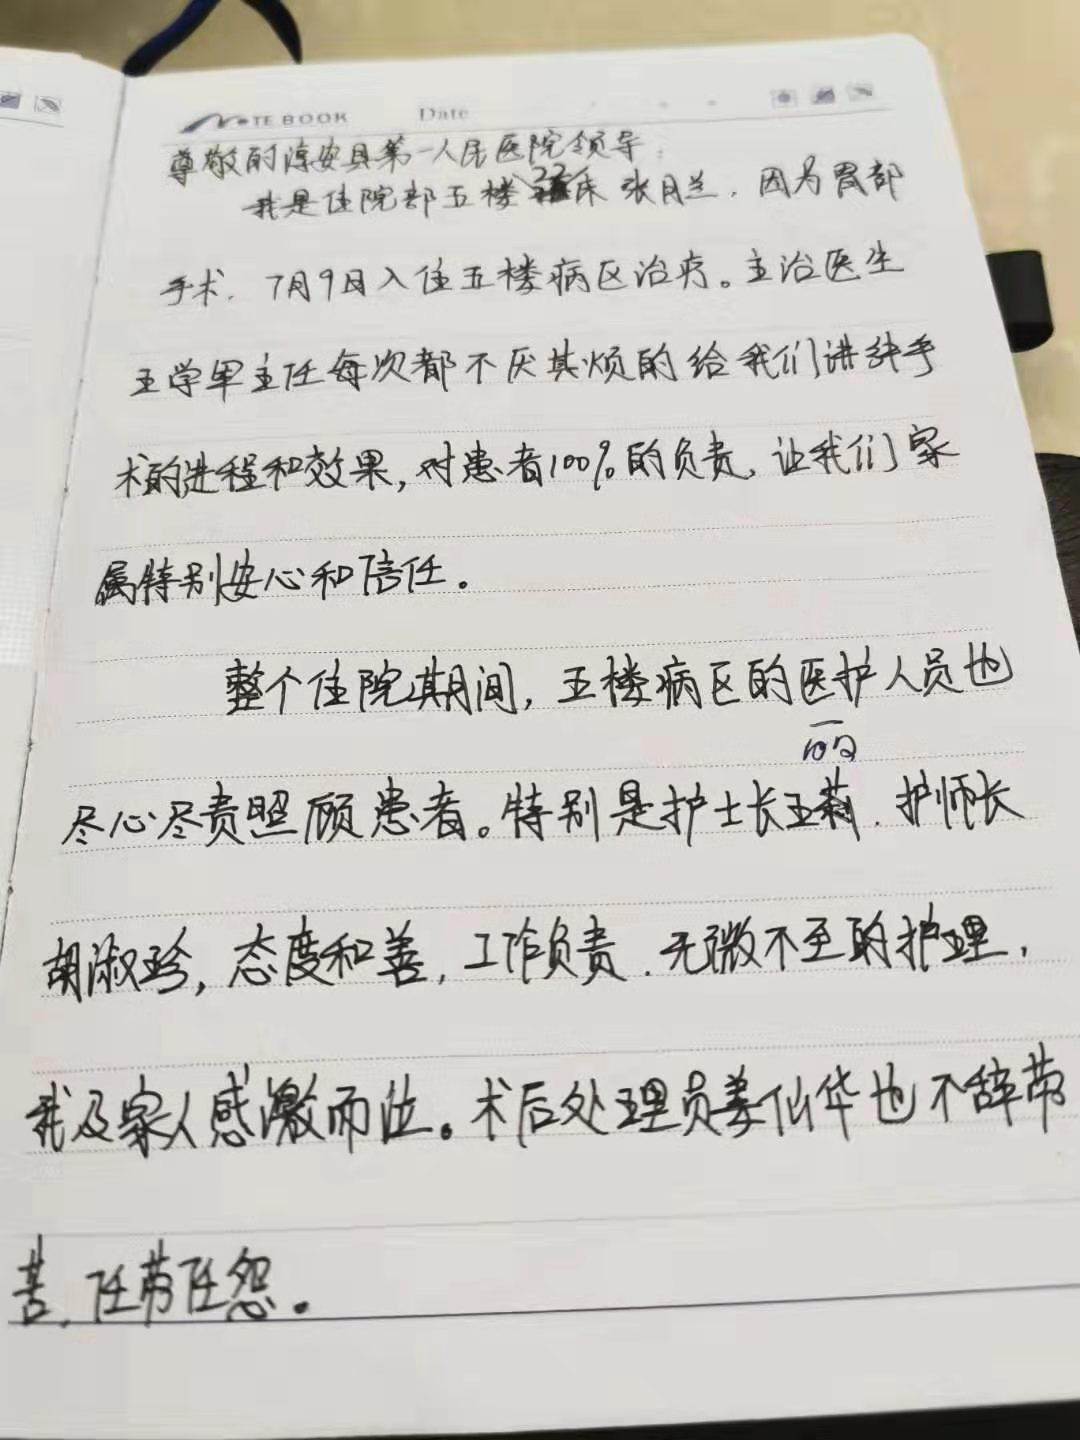 NOTEBOOK Date
尊敬的淳安县第一人民医院领导：
我是住院部五楼22床张月兰，因为胃部
手术，7月9日入住五楼病区治疗。主治医生
王学军主任每次都不厌其烦的给我们讲述手
术的进程和效果，对患者100%的负责，让我们家
属特别安心和信任。
整个住院期间，五楼病区的医护人员也
丽
尽心尽责照顾患者。特别是护士长王莉，护师长
胡淑珍，态度和善，工作负责，无微不至的护理，
我及家人感激而泣。术后处理员姜仙华也不辞劳
苦，任劳任怨。